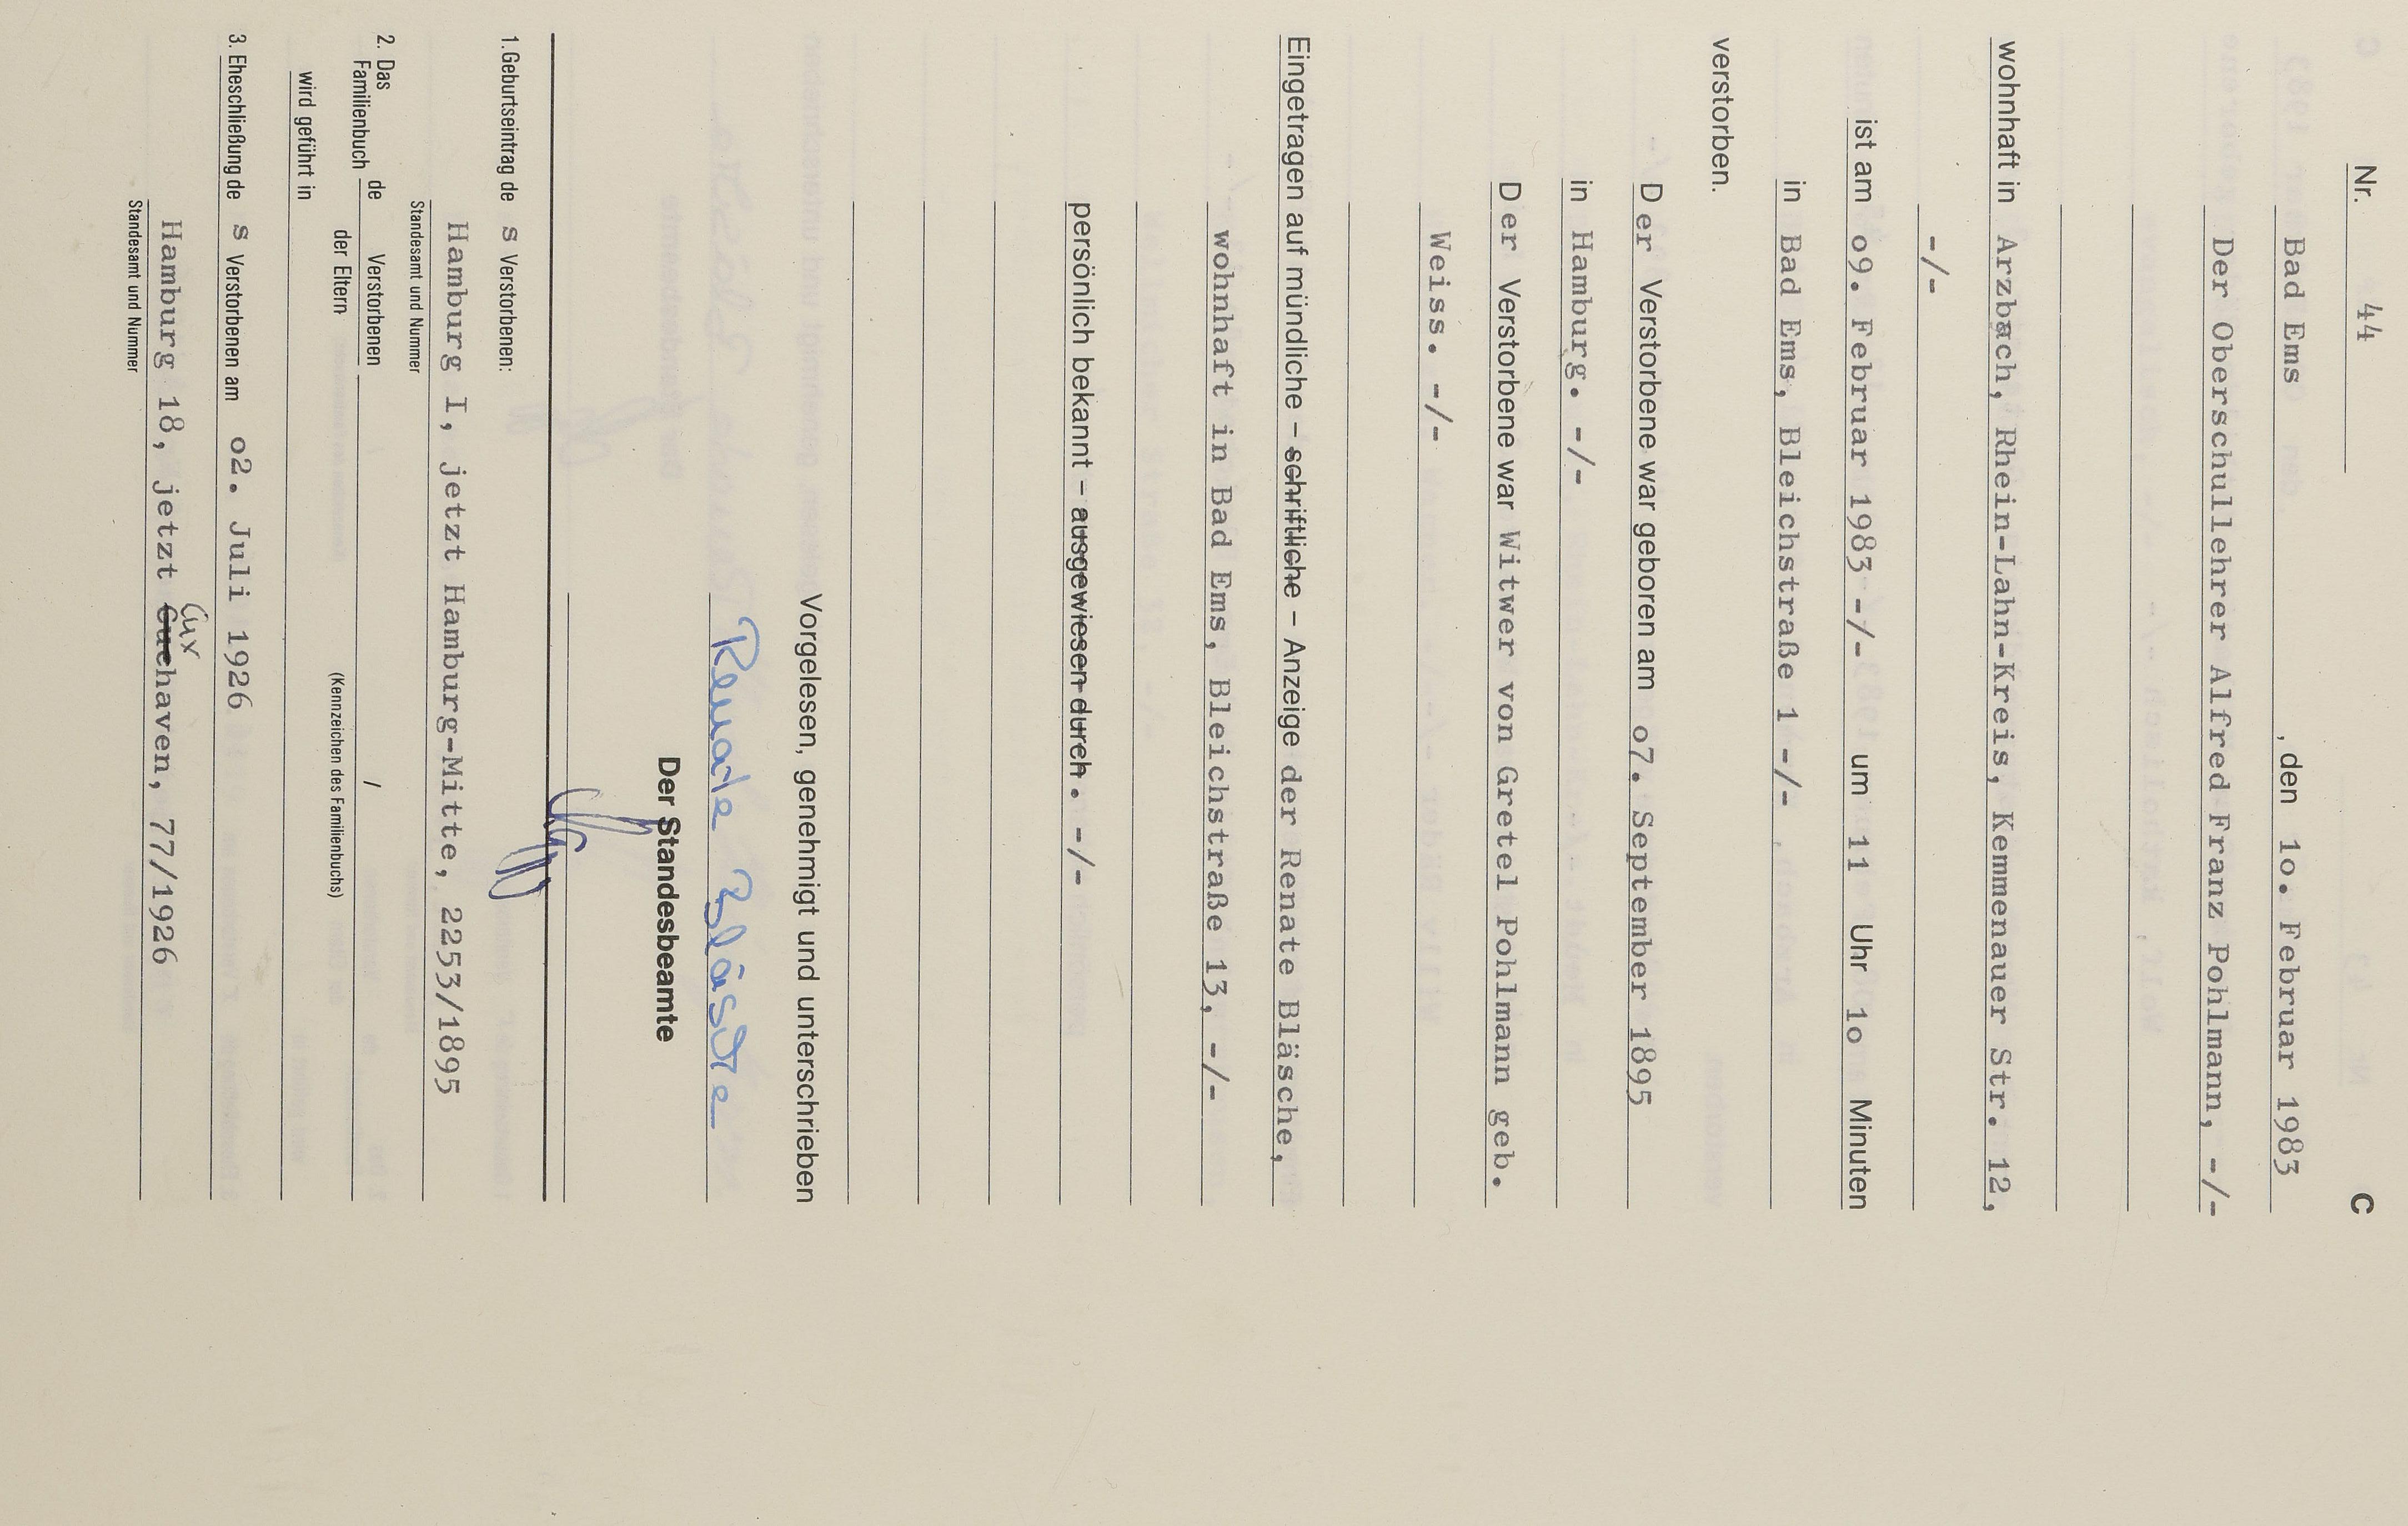 Nr. 44 C
Bad Ems , den 1o. Februar 1983
Der Oberschullehrer Alfred Franz Pohlmann, -/-
wohnhaft in Arzbach, Rhein-Lahn-Kreis, Kemmenauer Str. 12,
-/-
ist am o9. Februar 1983 -/- um 11 Uhr 1o Minuten
in Bad Ems, Bleichstraße 1 -/-
verstorben.
Der Verstorbene war geboren am o7. September 1895
in Hamburg. -/-
Der Verstorbene war Witwer von Gretel Pohlmann geb.
Weiss. -/-
Eingetragen auf mündliche – schriftliche – Anzeige der Renate Bläsche,
wohnhaft in Bad Ems, Bleichstraße 13, -/-
persönlich bekannt – ausgewiesen durch. -/-
Vorgelesen, genehmigt und unterschrieben
Renate Bläsche
Der Standesbeamte
1. Geburtseintrag des Verstorbenen:
Hamburg I, jetzt Hamburg-Mitte, 2253/1895
Standesamt und Nummer
2. Das Familienbuch de Verstorbenen /
der Eltern
(Kennzeichen des Familienbuchs)
wird geführt in
3. Eheschließung des Verstorbenen am o2. Juli 1926
Cux
Hamburg 18, jetzt Cuchaven, 77/1926
Standesamt und Nummer